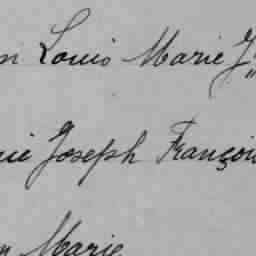 Louis Marie
Joseph François
Marie